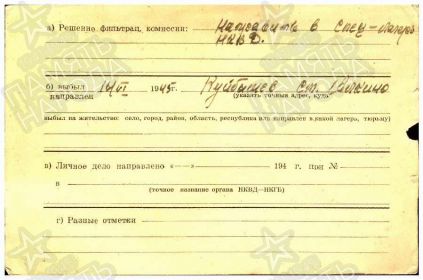 а) Решение фильтрац. комиссии: Направить в Спец-лагерь
НКВД.
б) выбыл 14/VI 1945г. Куйбышев ст.
направлен (указать точный адрес, куда
выбыл на жительство: село, город, район, область, республика или направлен в какой лагерь, тюрьму)
в) Личное дело направлено «—» 194 г. при №
в
(точное название органа НКВД—НКГБ)
г) Разные отметки